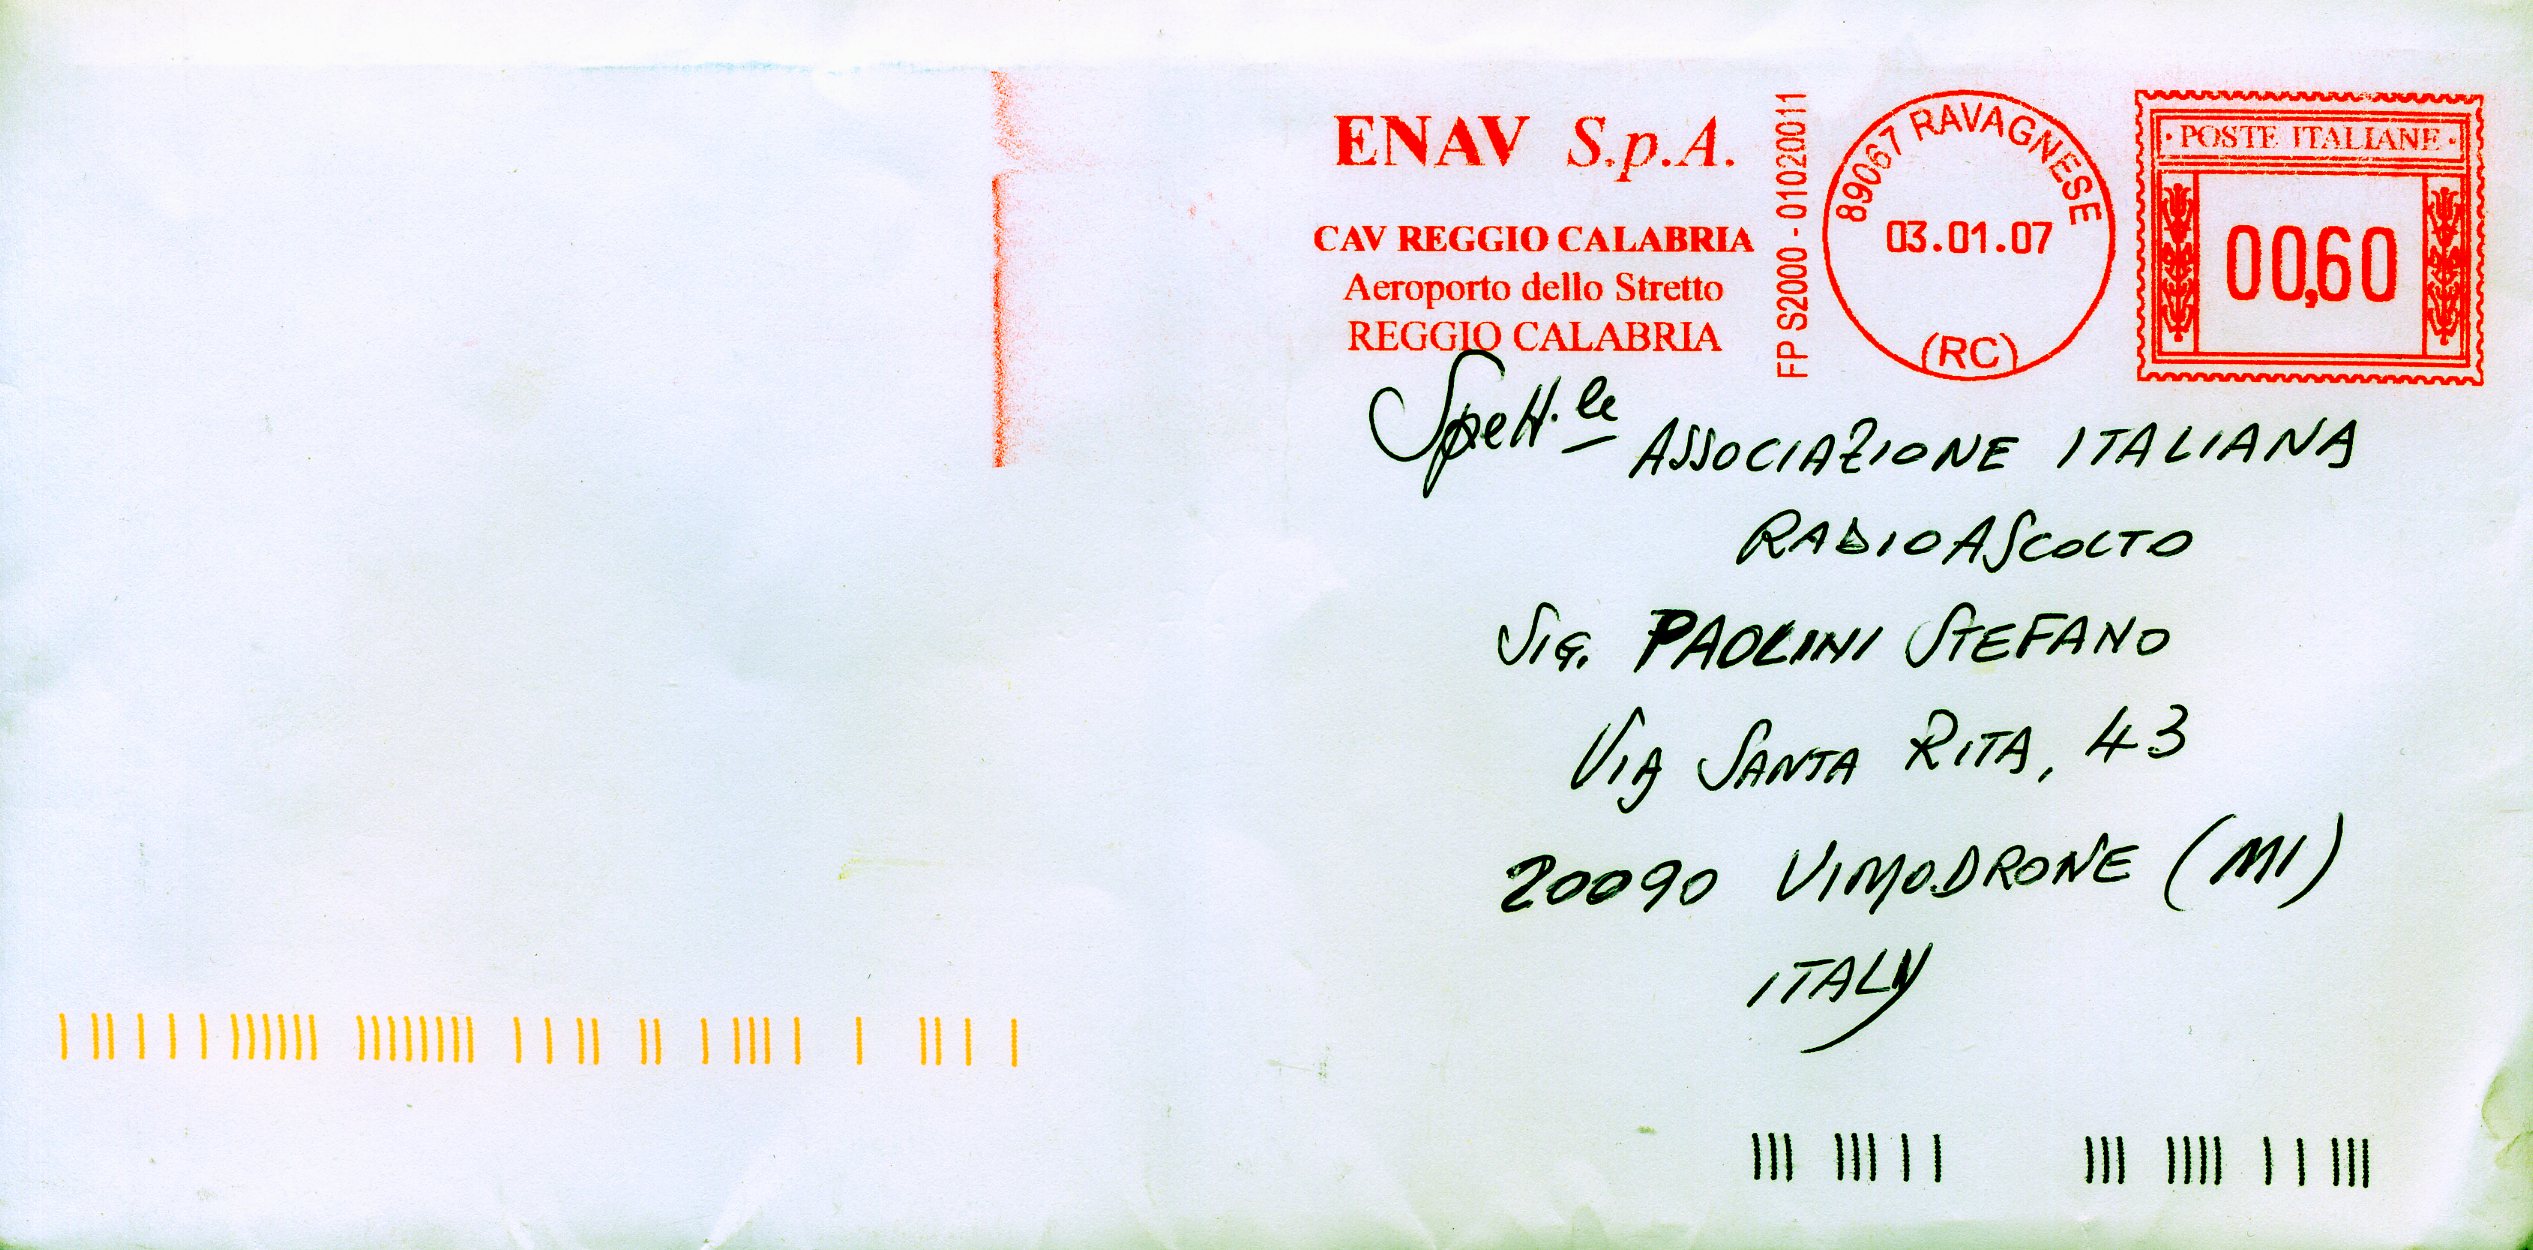 ENAV S.p.A.
CAV REGGIO CALABRIA
Aeroporto dello Stretto
REGGIO CALABRIA
FP S2000 - 01020011
89067 RAVAGNESE
03.01.07
(RC)
· POSTE ITALIANE ·
00,60
Spett.le ASSOCIAZIONE ITALIANA
RADIOASCOLTO
SIG. PAOLINI STEFANO
VIA SANTA RITA, 43
20090 VIMODRONE (MI)
ITALY